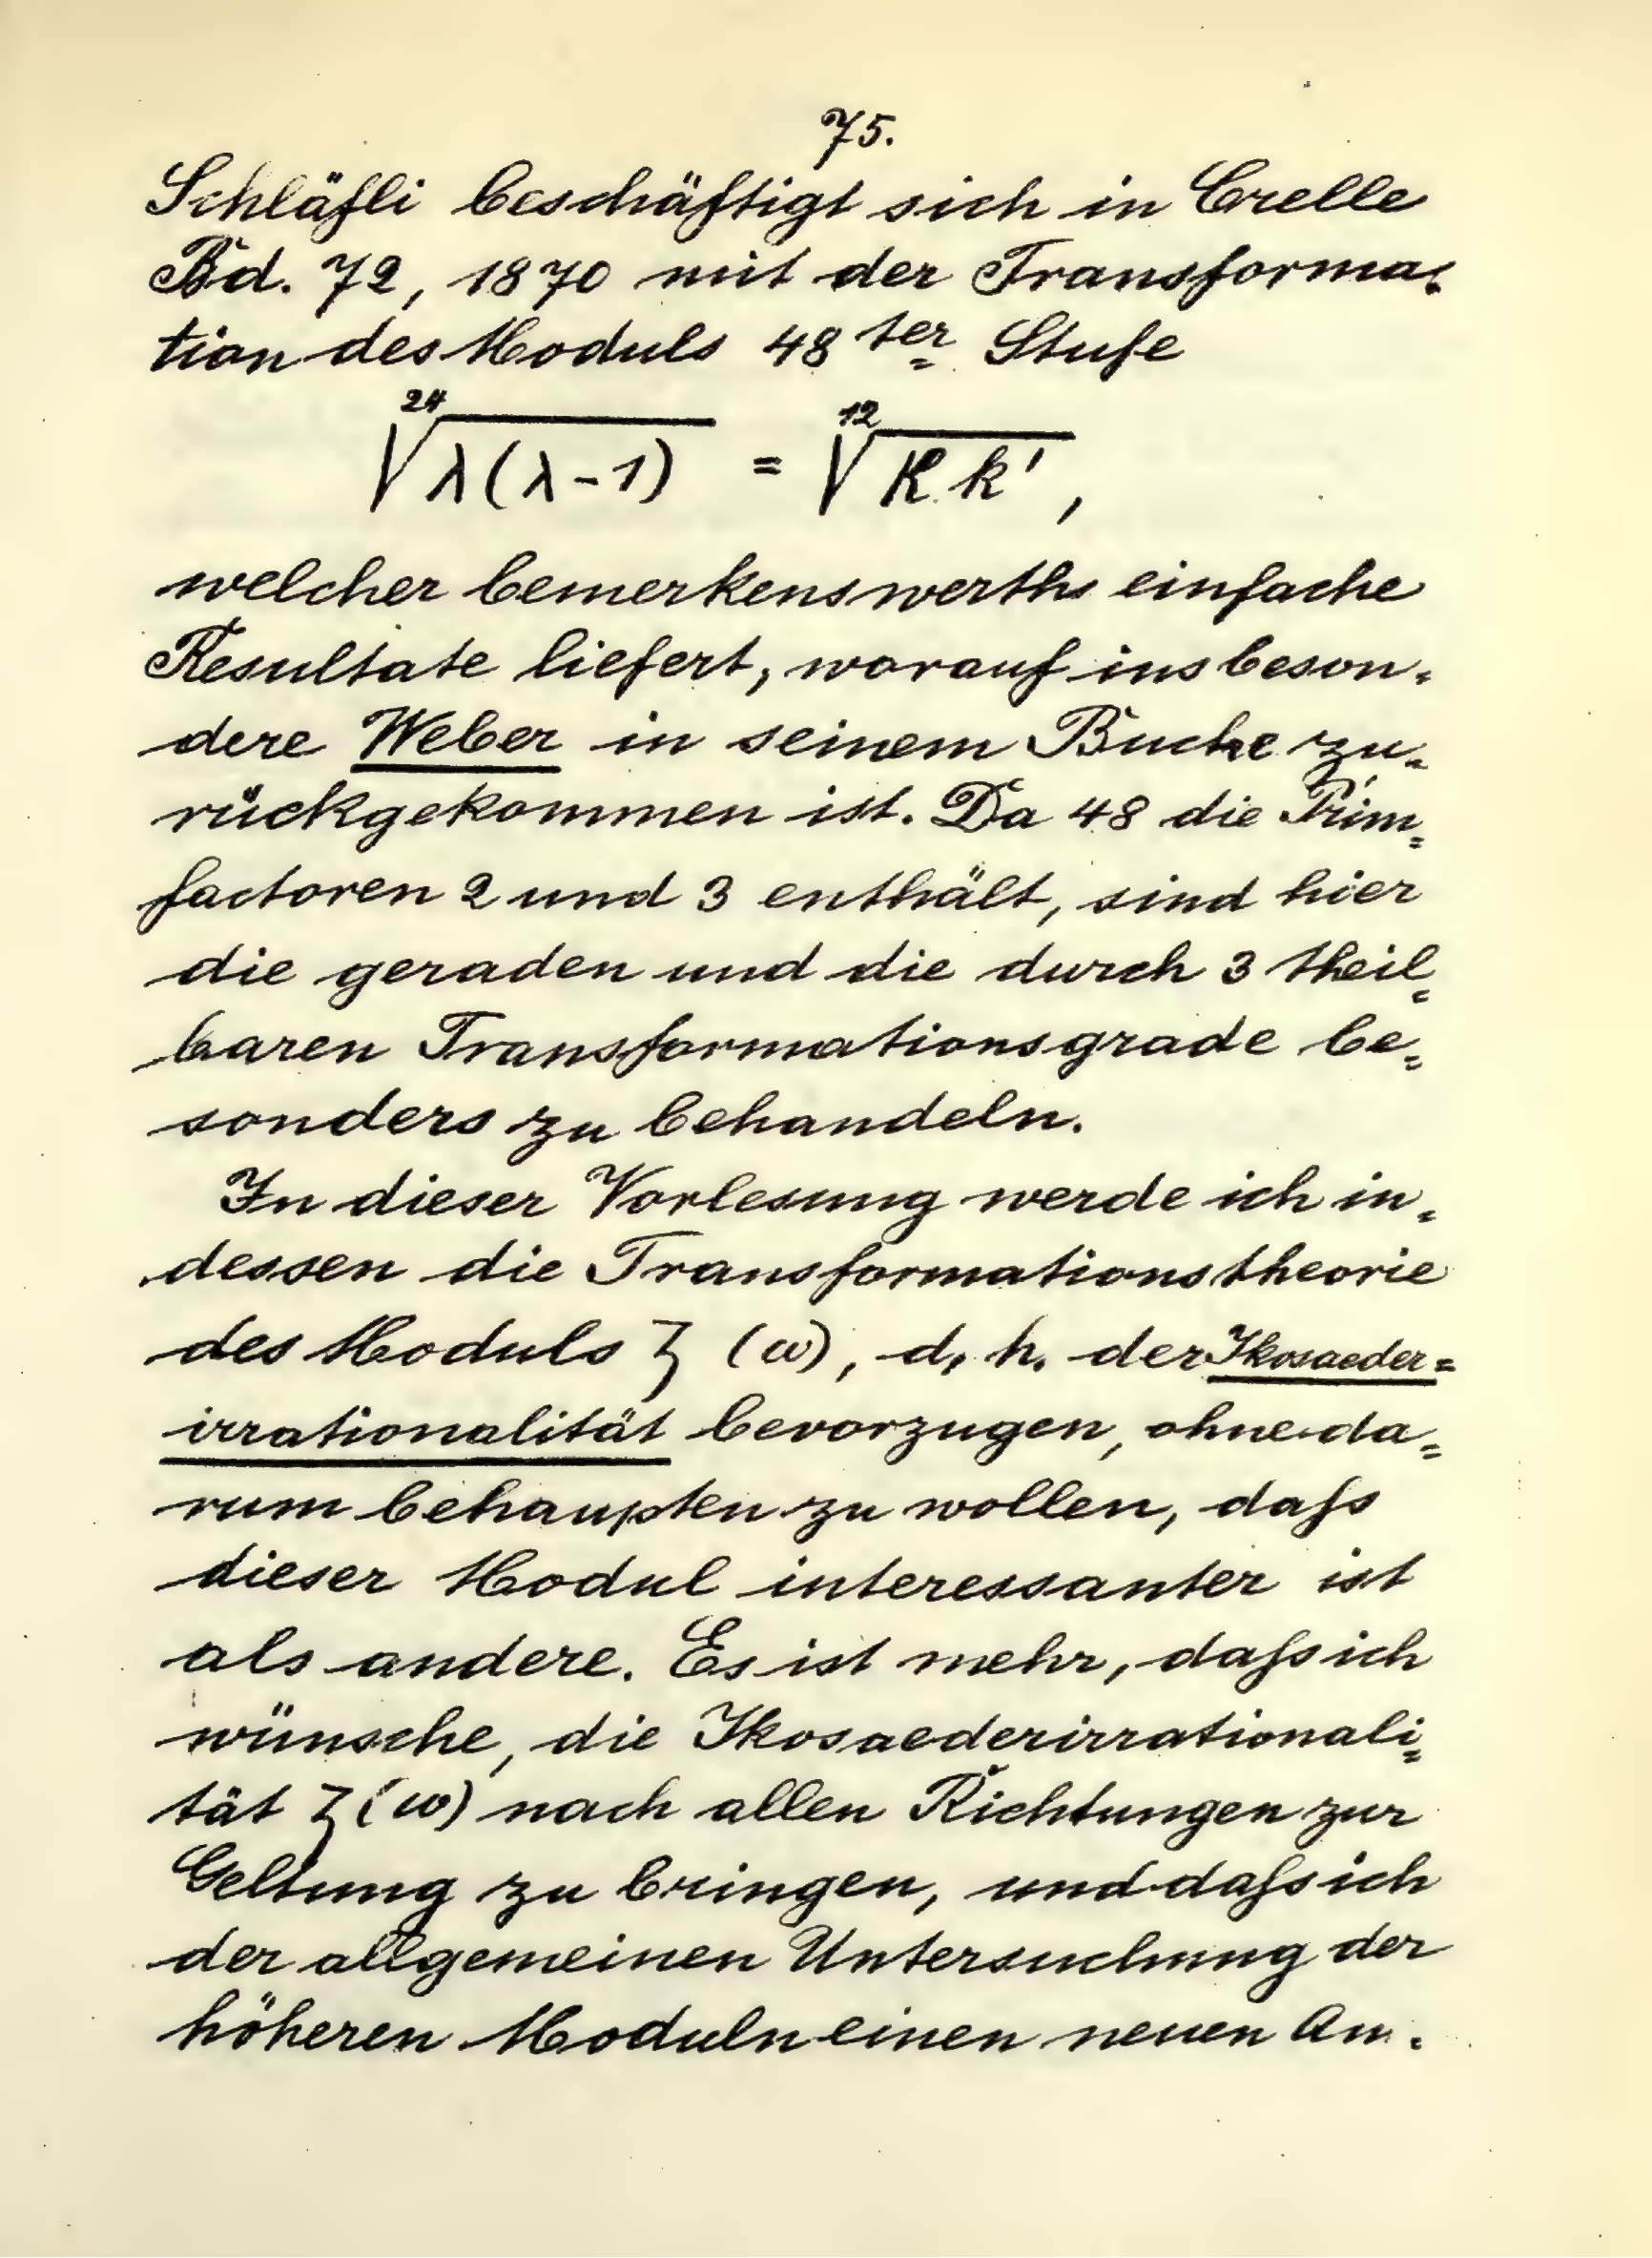 75.
Schläfli beschäftigt sich in Crelle
Bd. 72, 1870 mit der Transforma-
tion des Moduls 48 ter Stufe
²⁴√λ(λ-1) = ¹²√k k',
welcher bemerkenswerths einfache
Resultate liefert, worauf insbeson-
dere Weber in seinem Buche zu-
rückgekommen ist. Da 48 die Prim-
factoren 2 und 3 enthält, sind hier
die geraden und die durch 3 theil-
baren Transformationsgrade be-
sonders zu behandeln.
In dieser Vorlesung werde ich in-
dessen die Transformationstheorie
des Moduls ζ (ω), d. h. der Ikosaeder=
irrationalität bevorzugen, ohne da-
rum behaupten zu wollen, daſs
dieser Modul interessanter ist
als andere. Es ist mehr, daſs ich
wünsche, die Ikosaederirrationali-
tät ζ(ω) nach allen Richtungen zur
Geltung zu bringen, und daſs ich
der allgemeinen Untersuchung der
höheren Moduln einen neuen An-